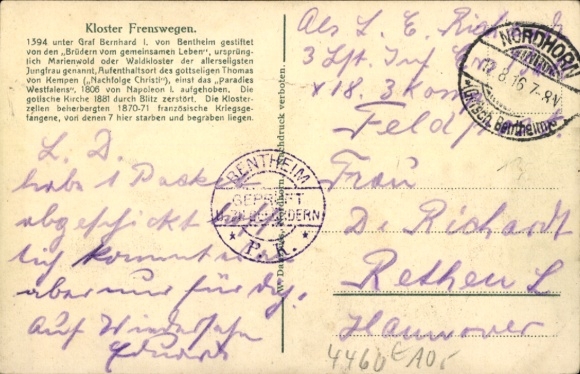 Kloster Frenswegen.
1394 unter Graf Bernhard I. von Bentheim gestiftet
von den „Brüdern vom gemeinsamen Leben“, ursprüng-
lich Marienwold oder Waldkloster der allerseligsten
Jungfrau genannt, Aufenthaltsort des gottseligen Thomas
von Kempen („Nachfolge Christi“), einst das „Paradies
Westfalens“, 1806 von Napoleon I. aufgehoben. Die
gotische Kirche 1881 durch Blitz zerstört. Die Kloster-
zellen beherbergten 1870-71 französische Kriegsge-
fangene, von denen 7 hier starben und begraben liegen.
L. D.
habe 1
abgeschickt
kommt
aber nur für
Auf Wiedersehn
BENTHEIM
GEPRÜFT
P. K.
Nachdruck verboten.
Als L. E.
3 Inf.
X 18. 3
Feldp
Frau
D. Richardt
Rethen L
Hannover
NORDHORN
8 16 7-8V
(Grfsch. Bentheim)
4460